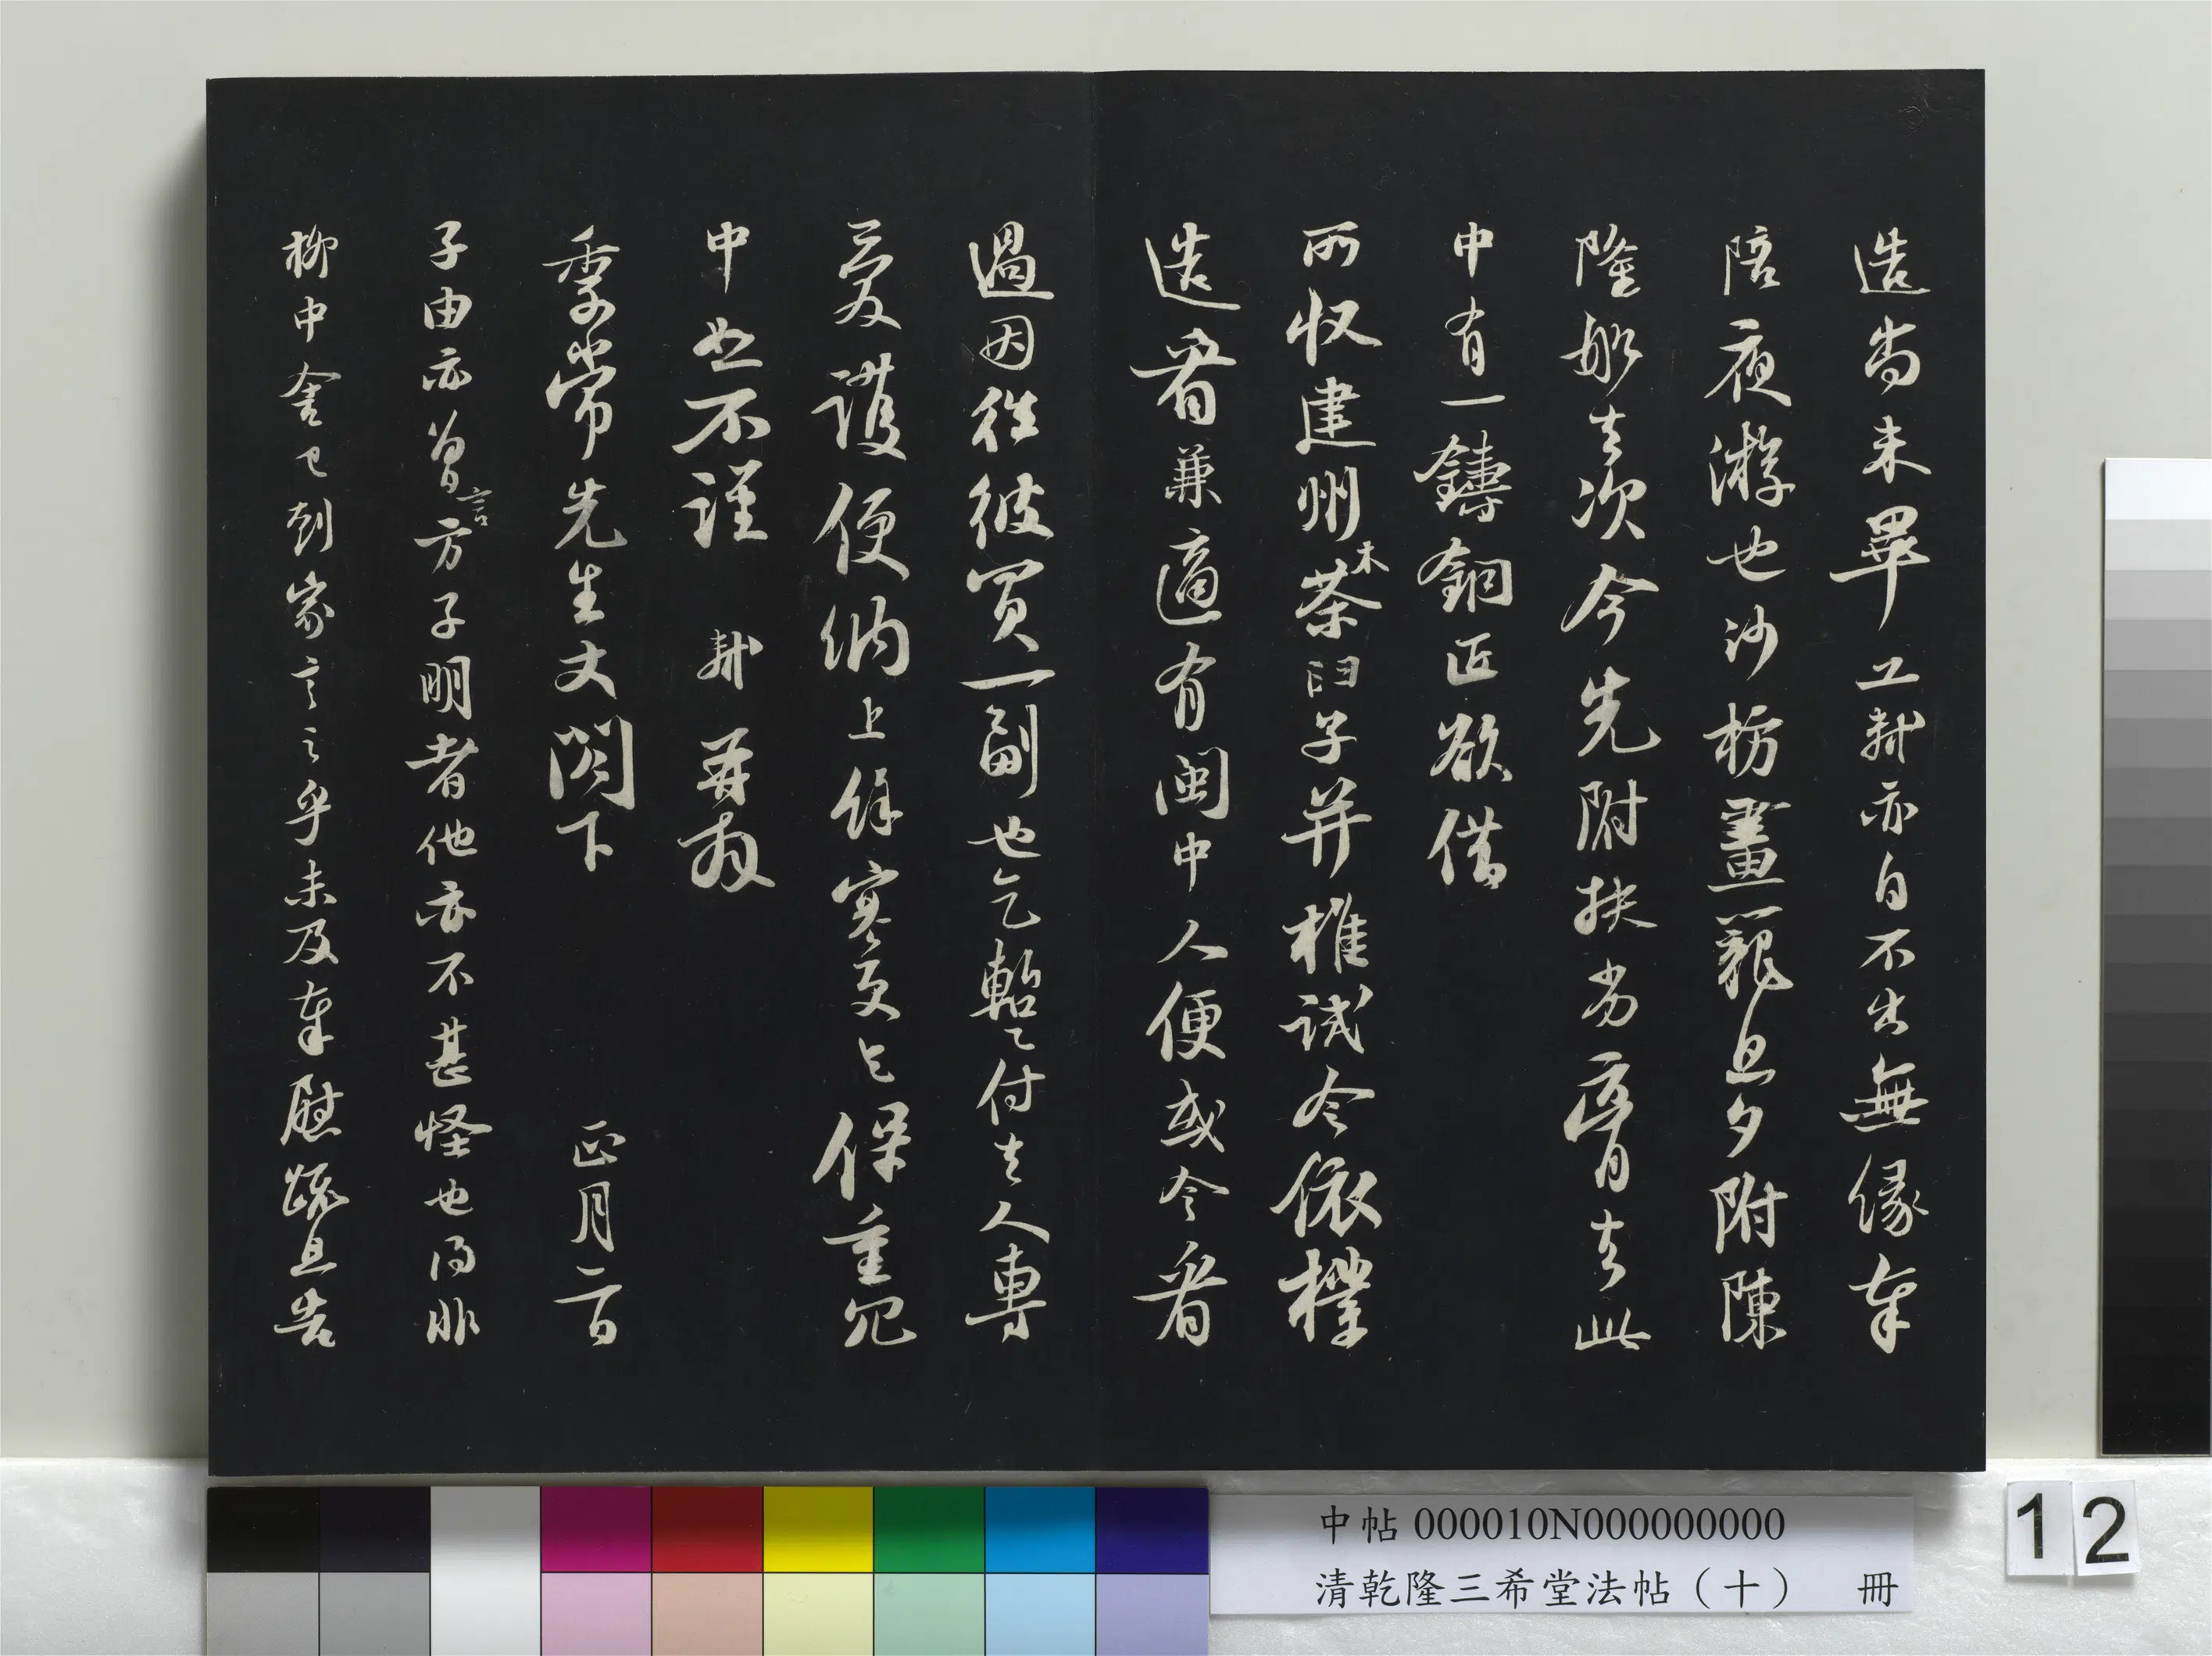 造尚未畢工軾亦自不出無緣奉
陪夜游也沙枋畫籠旦夕附陳
隆船去次今先附扶劣膏去此
中有一鑄銅匠欲借
所收建州木茶臼子并椎試令依樣
造看兼適有閩中人便或令看
過因往彼買一副也乞暫付去人專
愛護便納上餘寒更乞保重冗
中恕不謹 軾 再拜
季常先生丈閤下 正月二日
子由亦曾言方子明者他亦不甚怪也得非
柳中舍已到家言之乎未及奉慰疏且告
中帖 000010N000000000
清乾隆三希堂法帖（十） 冊
12